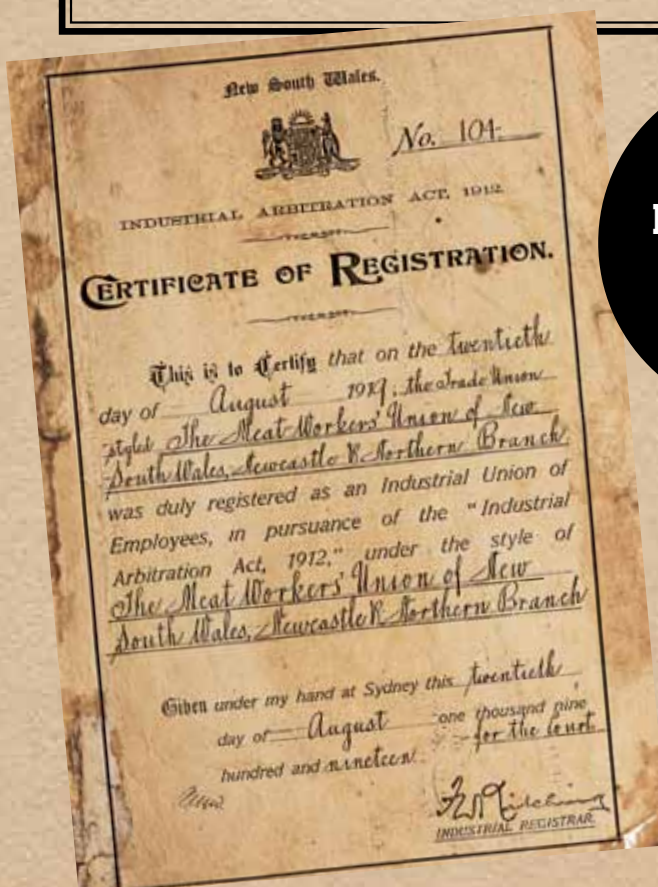 New South Wales.
No. 104.
INDUSTRIAL ARBITRATION ACT, 1912.
CERTIFICATE OF REGISTRATION.
This is to Certify that on the twentieth
day of August 1919, the Trade Union
styled The Meat Workers' Union of New
South Wales, Newcastle & Northern Branch
was duly registered as an Industrial Union of
Employees, in pursuance of the "Industrial
Arbitration Act, 1912," under the style of
The Meat Workers' Union of New
South Wales, Newcastle & Northern Branch
Given under my hand at Sydney this twentieth
day of August one thousand nine
hundred and nineteen. for the Court
INDUSTRIAL REGISTRAR.